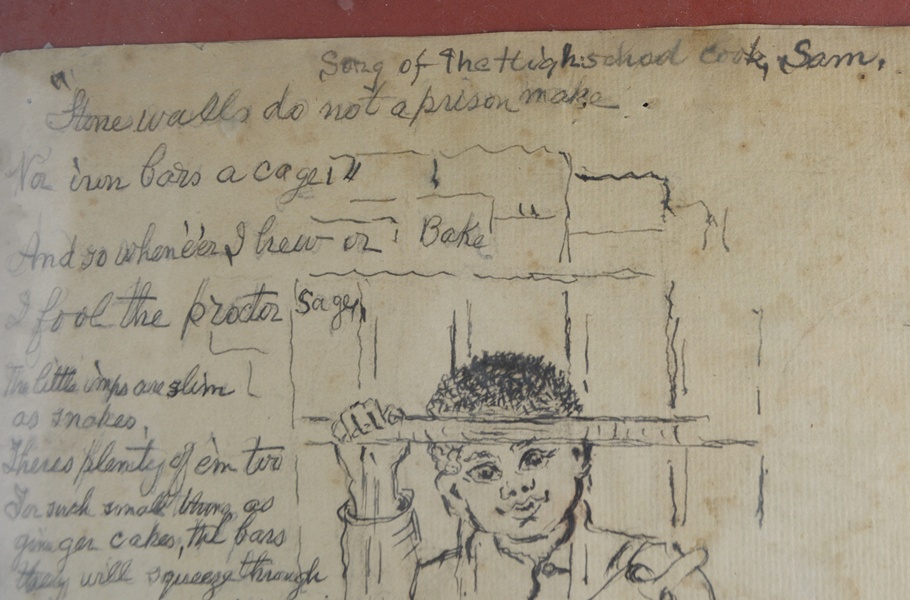 Song of the Highschool cook, Sam.
"Stone walls do not a prison make
Nor iron bars a cage;"
And so when'e'er I brew or Bake
I fool the proctor sage,
The little imps are slim
as snakes,
Theres plenty of em too
For such small things as
ginger cakes, the bars
they will squeeze through